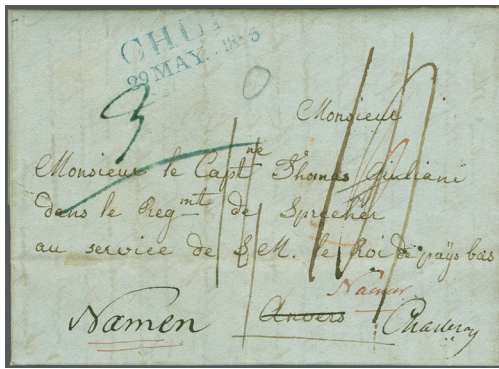 CHUR
29 MAY. 1835
3
Monsieur
Monsieur le Capt.ne Thomas Giuliani
dans le Reg.mt de Sprecher
au service de S. M. le Roi de païs bas
Namur
Namen Anvers Charleroy